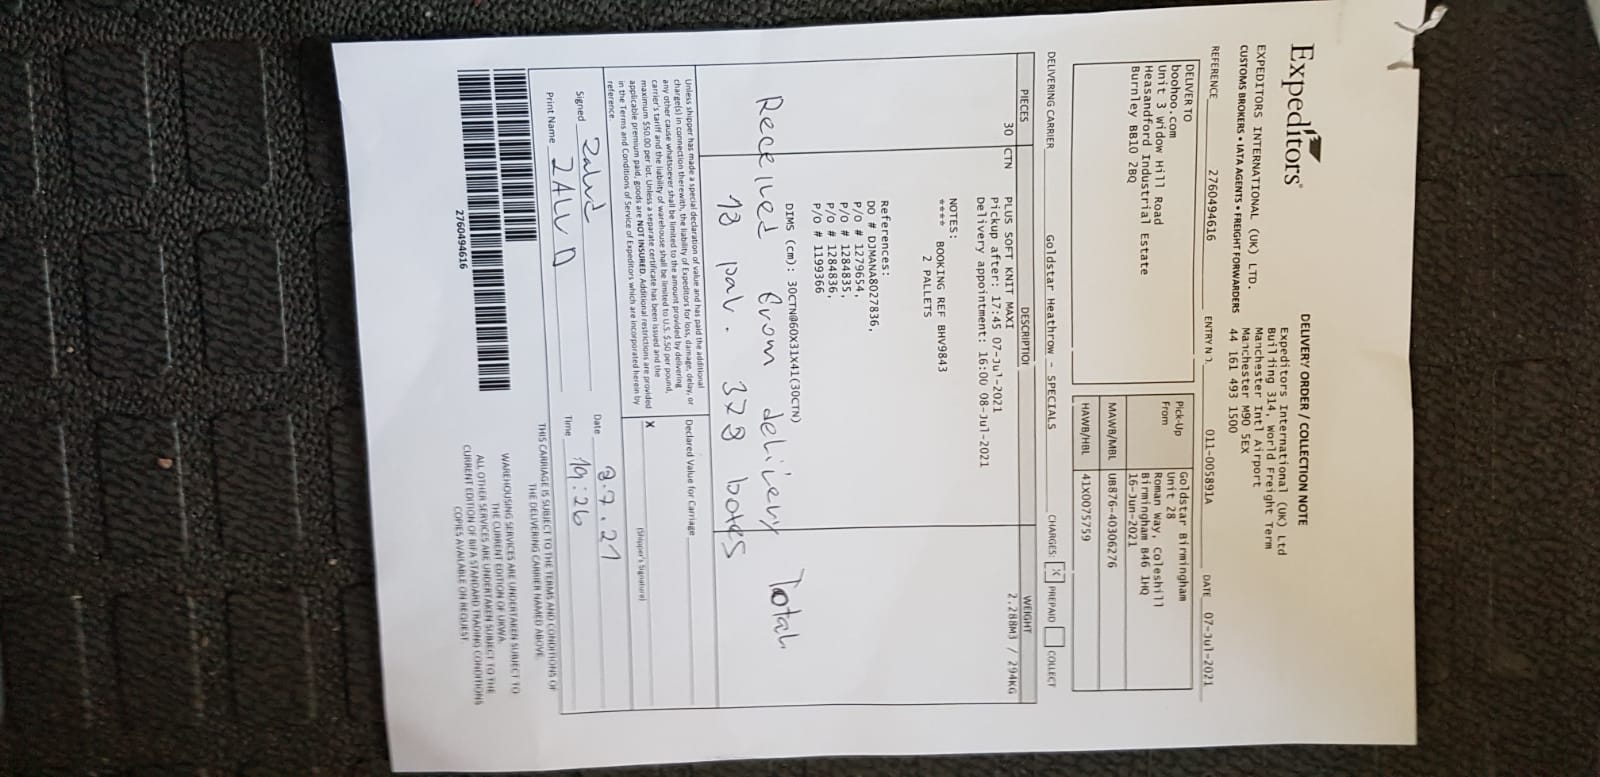 Expeditors®
DELIVERY ORDER / COLLECTION NOTE
EXPEDITORS INTERNATIONAL (UK) LTD.
CUSTOMS BROKERS • IATA AGENTS • FREIGHT FORWARDERS
Expeditors International (UK) Ltd
Building 314, World Freight Term
Manchester Intl Airport
Manchester M90 5EX
44 161 493 1500
REFERENCE 2760494616 ENTRY NO. 011-005891A DATE 07-Jul-2021
DELIVER TO
boohoo.com
Unit 3 Widow Hill Road
Heasandford Industrial Estate
Burnley BB10 2BQ
Pick-Up From
Goldstar Birmingham
Unit 28
Roman Way, Coleshill
Birmingham B46 1HQ
16-Jun-2021
MAWB/MBL UB876-40306276
HAWB/HBL 41X0075759
DELIVERING CARRIER Goldstar Heathrow - SPECIALS CHARGES: X PREPAID COLLECT
PIECES DESCRIPTION WEIGHT
30 CTN PLUS SOFT KNIT MAXI 2.288M3 / 294KG
Pickup after: 17:45 07-Jul-2021
Delivery appointment: 16:00 08-Jul-2021
NOTES:
**** BOOKING REF BHV9843
2 PALLETS
References:
DO # DJMANA8027836,
P/O # 1279654,
P/O # 1284835,
P/O # 1284836,
P/O # 1199366
DIMS (cm): 30CTN@60X31X41(30CTN)
Received from delivery Total
13 pal. 373 boxes
Unless shipper has made a special declaration of value and has paid the additional
charge(s) in connection therewith, the liability of Expeditors for loss, damage, delay, or
any other cause whatsoever shall be limited to the amount provided by delivering
carrier's tariff and the liability of warehouse shall be limited to U.S. $.50 per pound,
maximum $50.00 per lot. Unless a separate certificate has been issued and the
applicable premium paid, goods are NOT INSURED. Additional restrictions are provided
in the Terms and Conditions of Service of Expeditors which are incorporated herein by
reference.
Declared Value for Carriage
X
(Shipper's Signature)
Signed Date 8.7.21
Print Name Time 19:26
THIS CARRIAGE IS SUBJECT TO THE TERMS AND CONDITIONS OF
THE DELIVERING CARRIER NAMED ABOVE.
WAREHOUSING SERVICES ARE UNDERTAKEN SUBJECT TO
THE CURRENT EDITION OF UKWA.
ALL OTHER SERVICES ARE UNDERTAKEN SUBJECT TO THE
CURRENT EDITION OF BIFA STANDARD TRADING CONDITIONS
COPIES AVAILABLE ON REQUEST.
2760494616